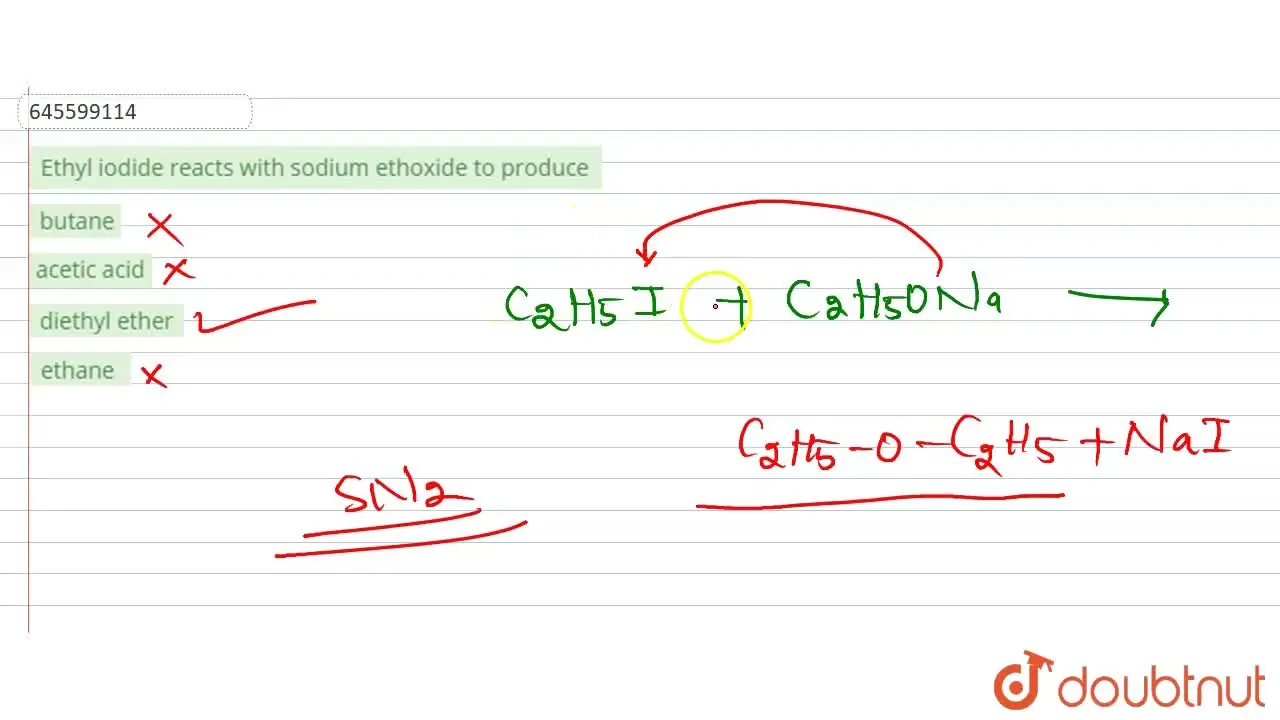 645599114
Ethyl iodide reacts with sodium ethoxide to produce
butane
acetic acid
diethyl ether
ethane
C2H5I + C2H5ONa →
C2H5-O-C2H5 + NaI
SN2
doubtnut